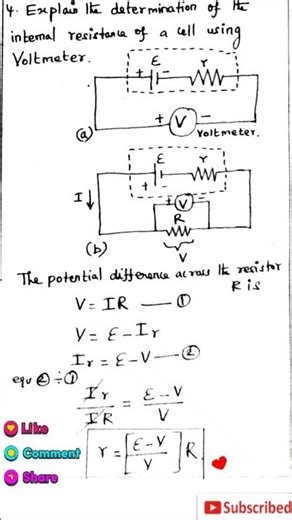 4. Explain the determination of the
internal resistance of a cell using
Voltmeter.
ε r
+ −
+ V −
(a) Voltmeter.
ε r
+ −
I V
R
(b) V
The potential difference across the resistor
R is
V = IR — ①
V = ε − Ir
Ir = ε − V — ②
equ ② ÷ ①
Ir/IR = ε − V/V
r = [ε − V/V] R
Like
Comment
Share
Subscribed